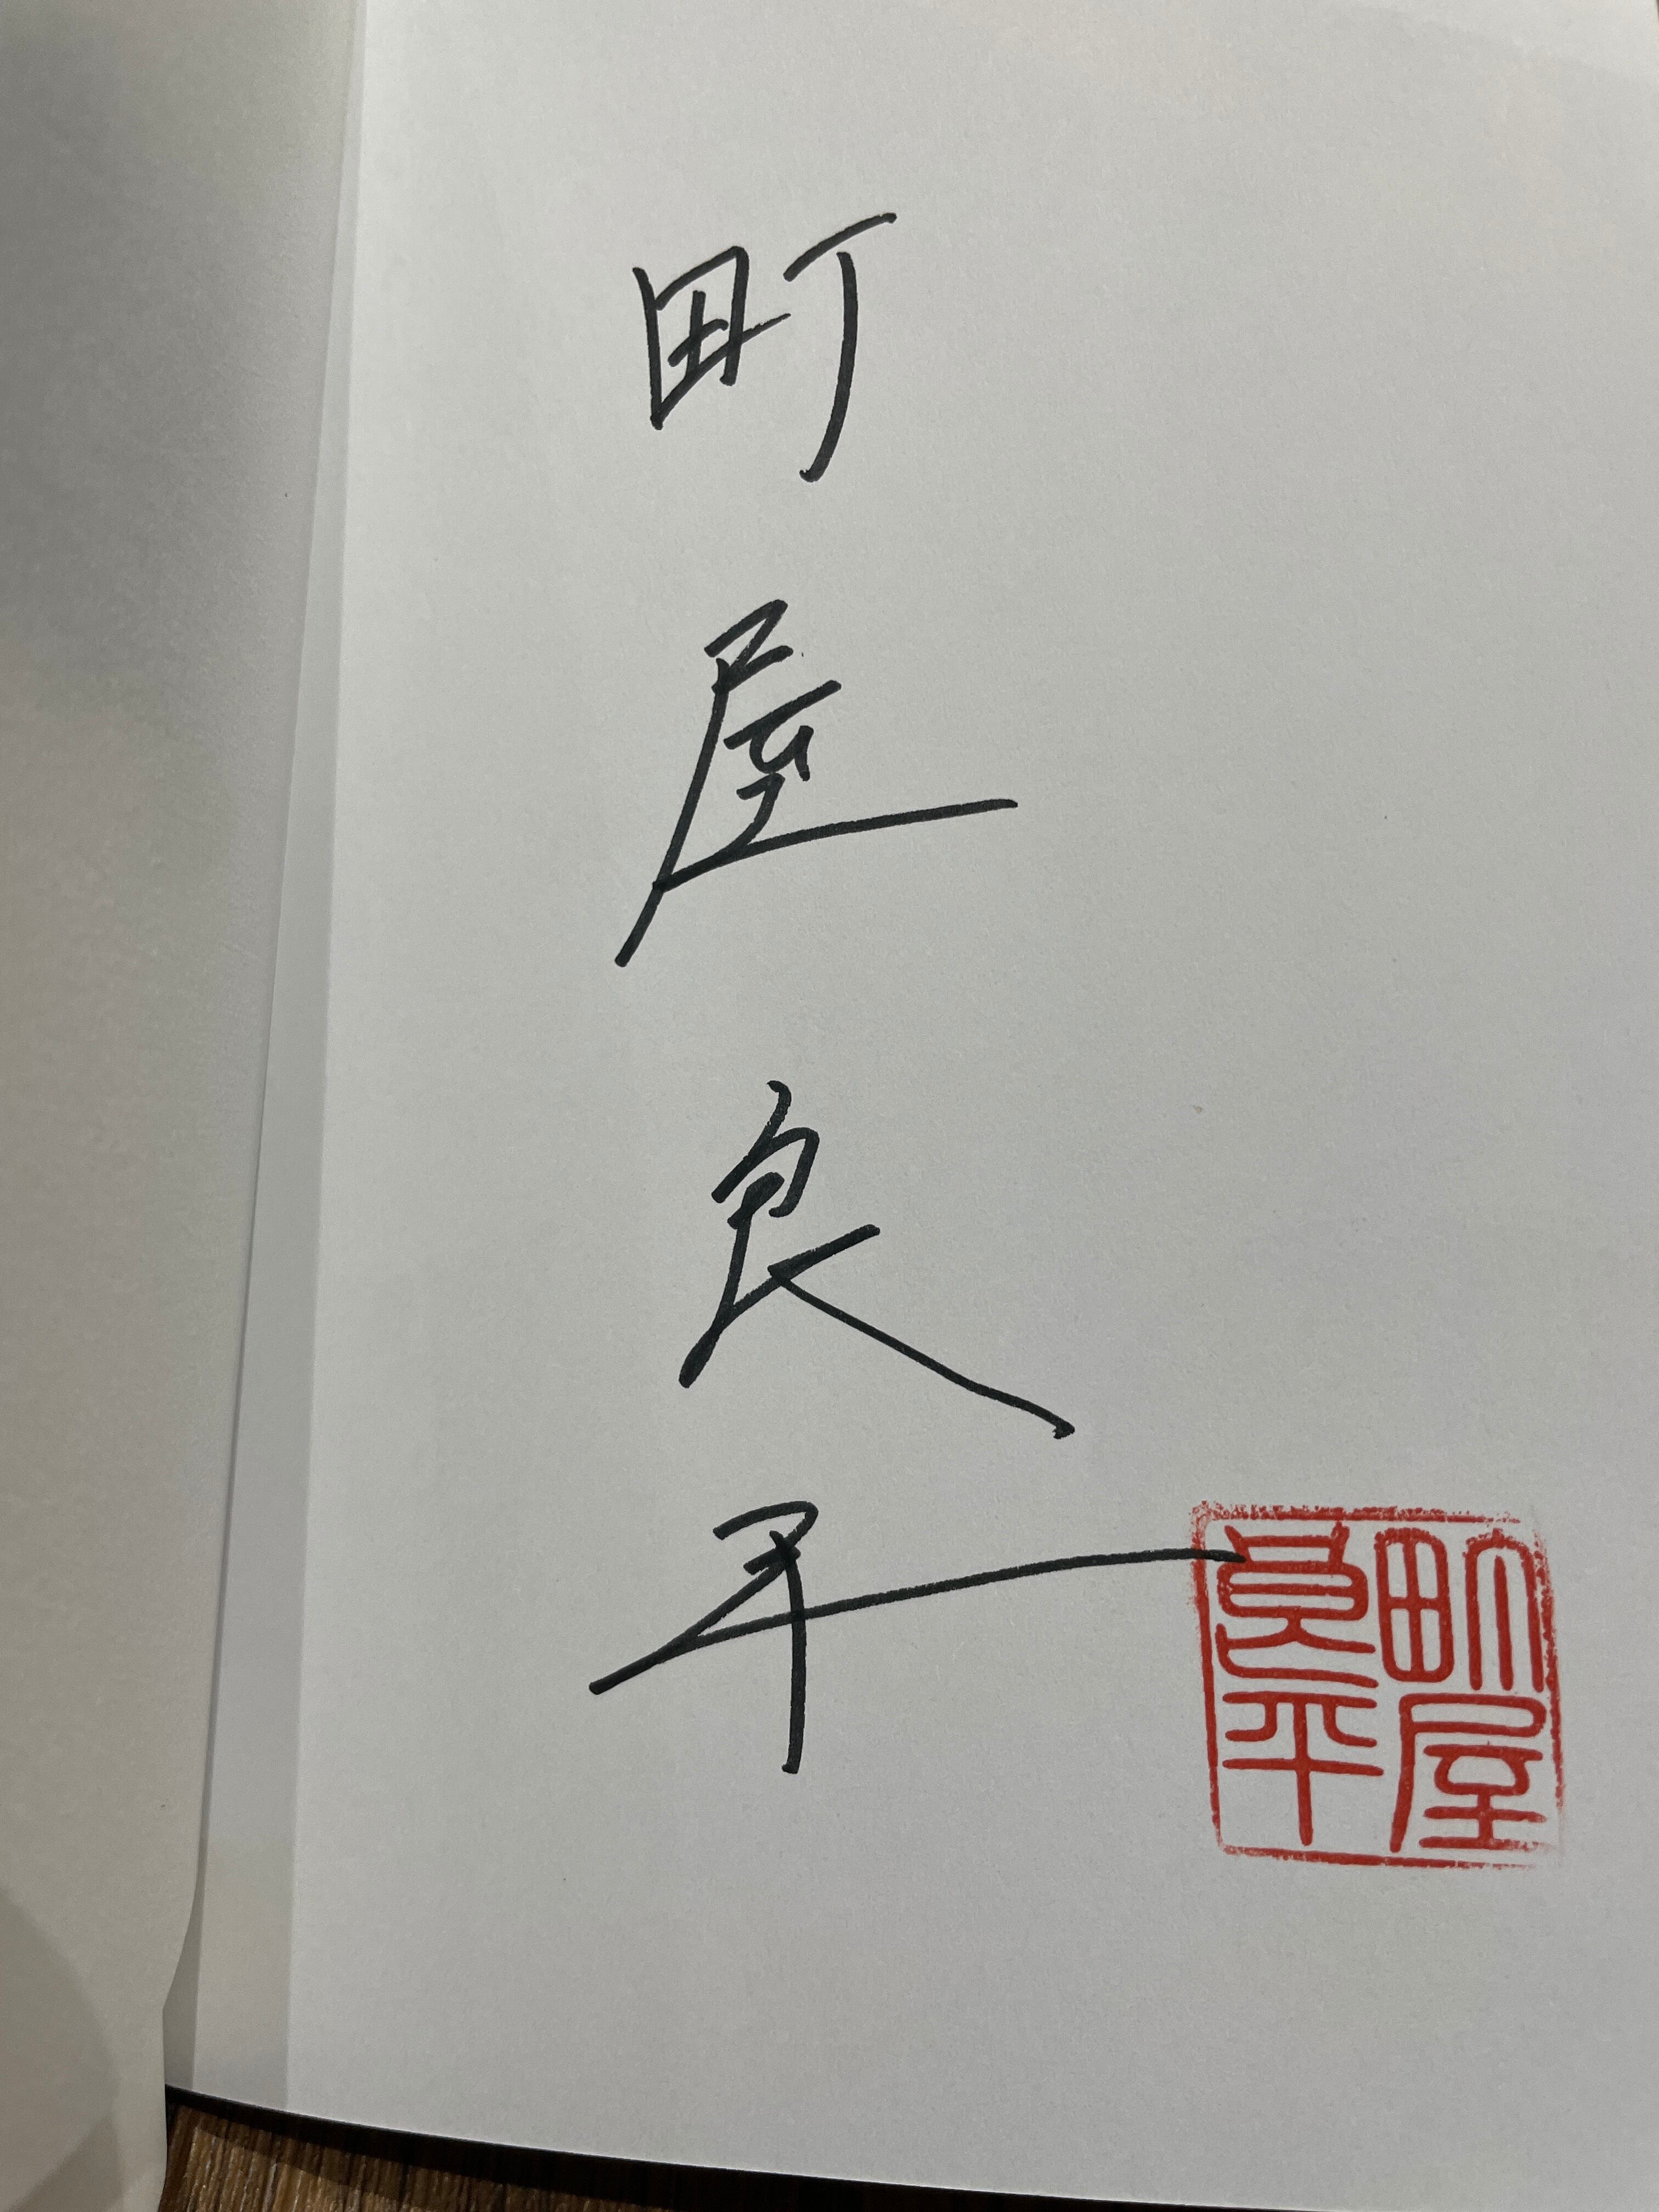 町屋良平
町屋
良平